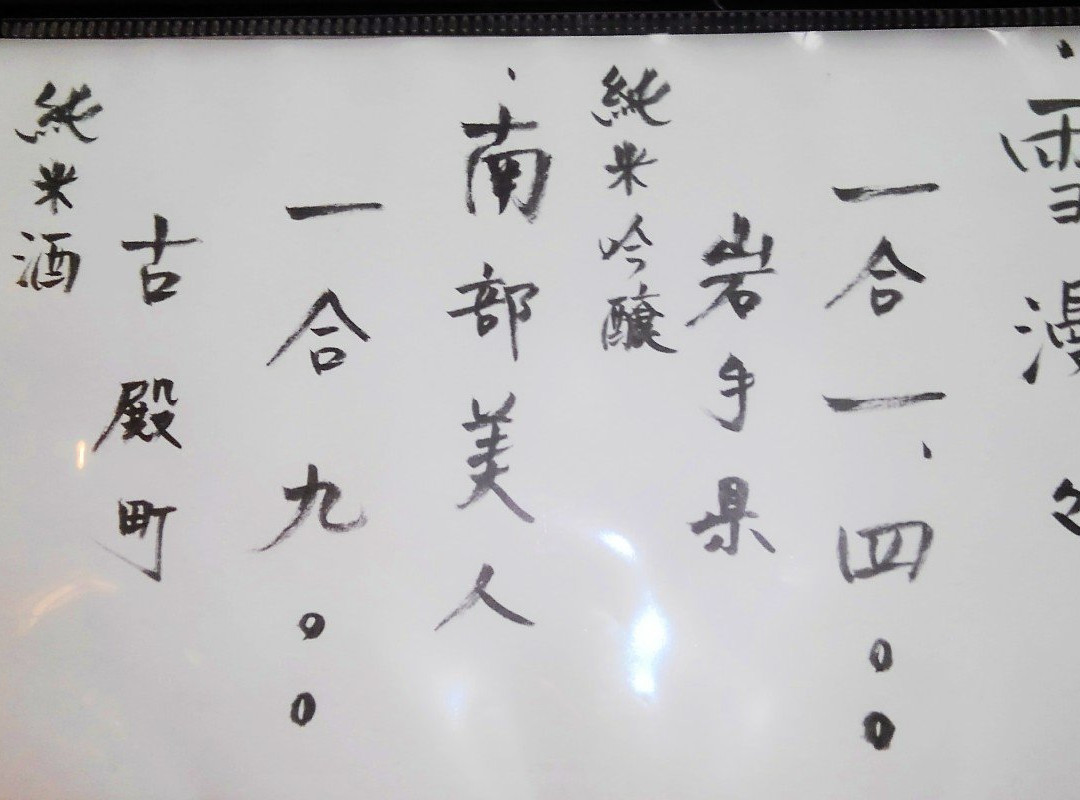 雪漫々
一合 一、四〇〇
岩手県
純米吟醸
南部美人
一合 九〇〇
古殿町
純米酒